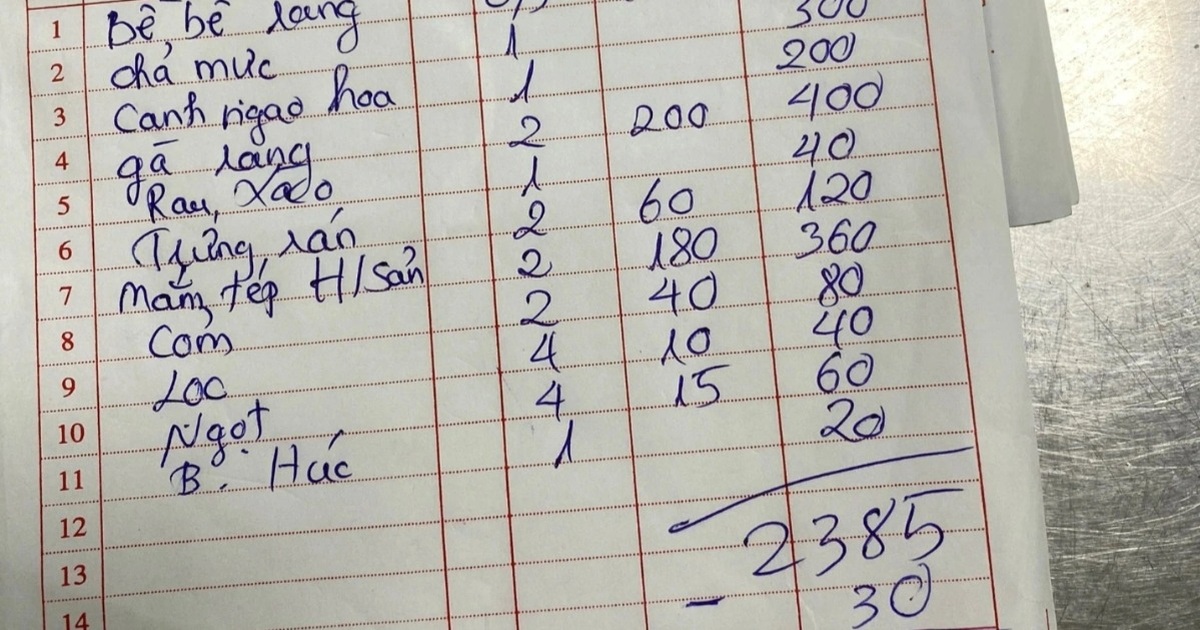 1 Bề bề rang
2 chả mực 1 300
3 Canh ngao hoa 1 200
4 gà rang 2 200 400
5 Rau, xào 1 40
6 Trứng rán 2 60 120
7 Mắm tép H/Sản 2 180 360
8 Cơm 2 40 80
9 LOC 4 10 40
10 Ngọt 4 15 60
11 B. Húc 1 20
12 2385
13 - 30
14